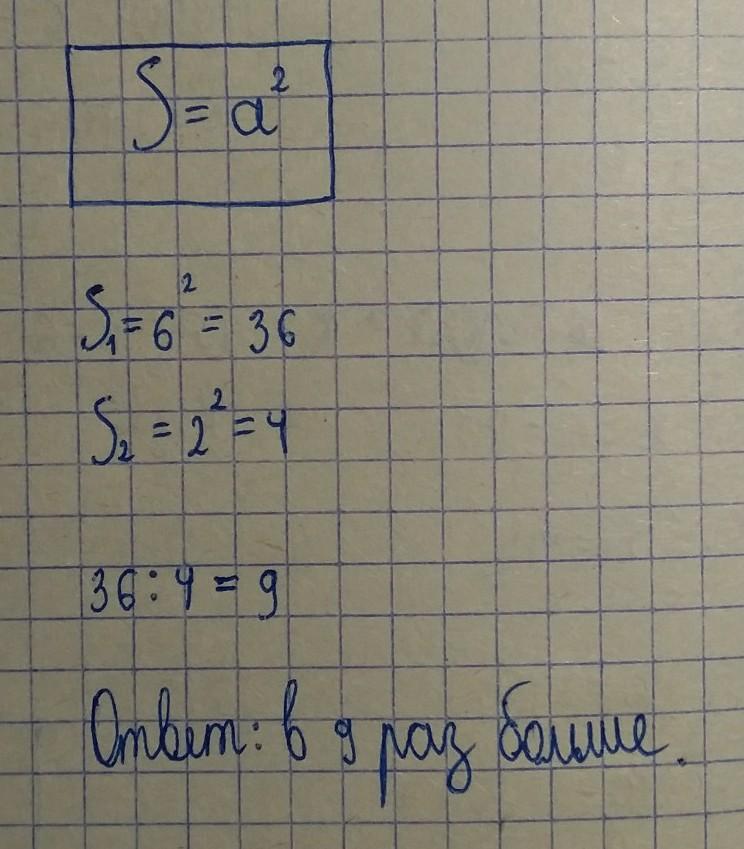 S = a²
S₁ = 6² = 36
S₂ = 2² = 4
36 : 4 = 9
Ответ: в 9 раз больше.